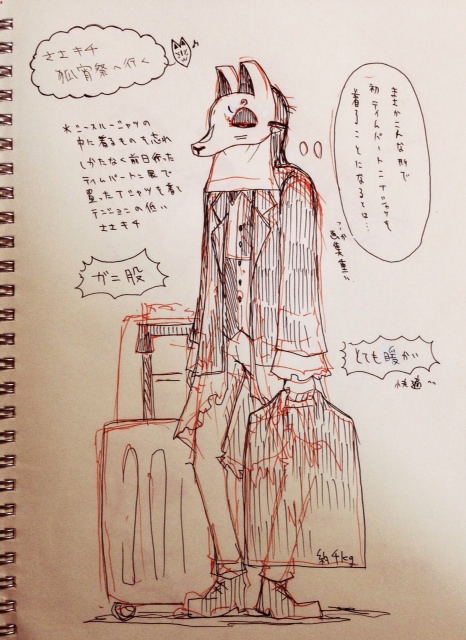 ささキチ
狐宵祭へ行く
まさかこんな形で
初ティムバートンTシャツを
着ることになるとは…
中に着るものも忘れ
しかたなく前日行った
ティムバートン展で
買ったTシャツを着て
テンションの低い
ささキチ
ガニ股
とても暖かい
快適〜
約4kg